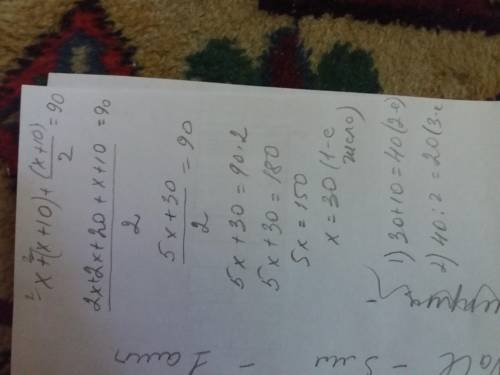 x + (x+10) + (x+10)/2 = 90
2x+2x+20+x+10/2 = 90
5x+30/2 = 90
5x+30=90·2
5x+30=180
5x=150
x=30 (1-е
число)
1) 30+10=40(2-е)
2) 40:2=20(3-е